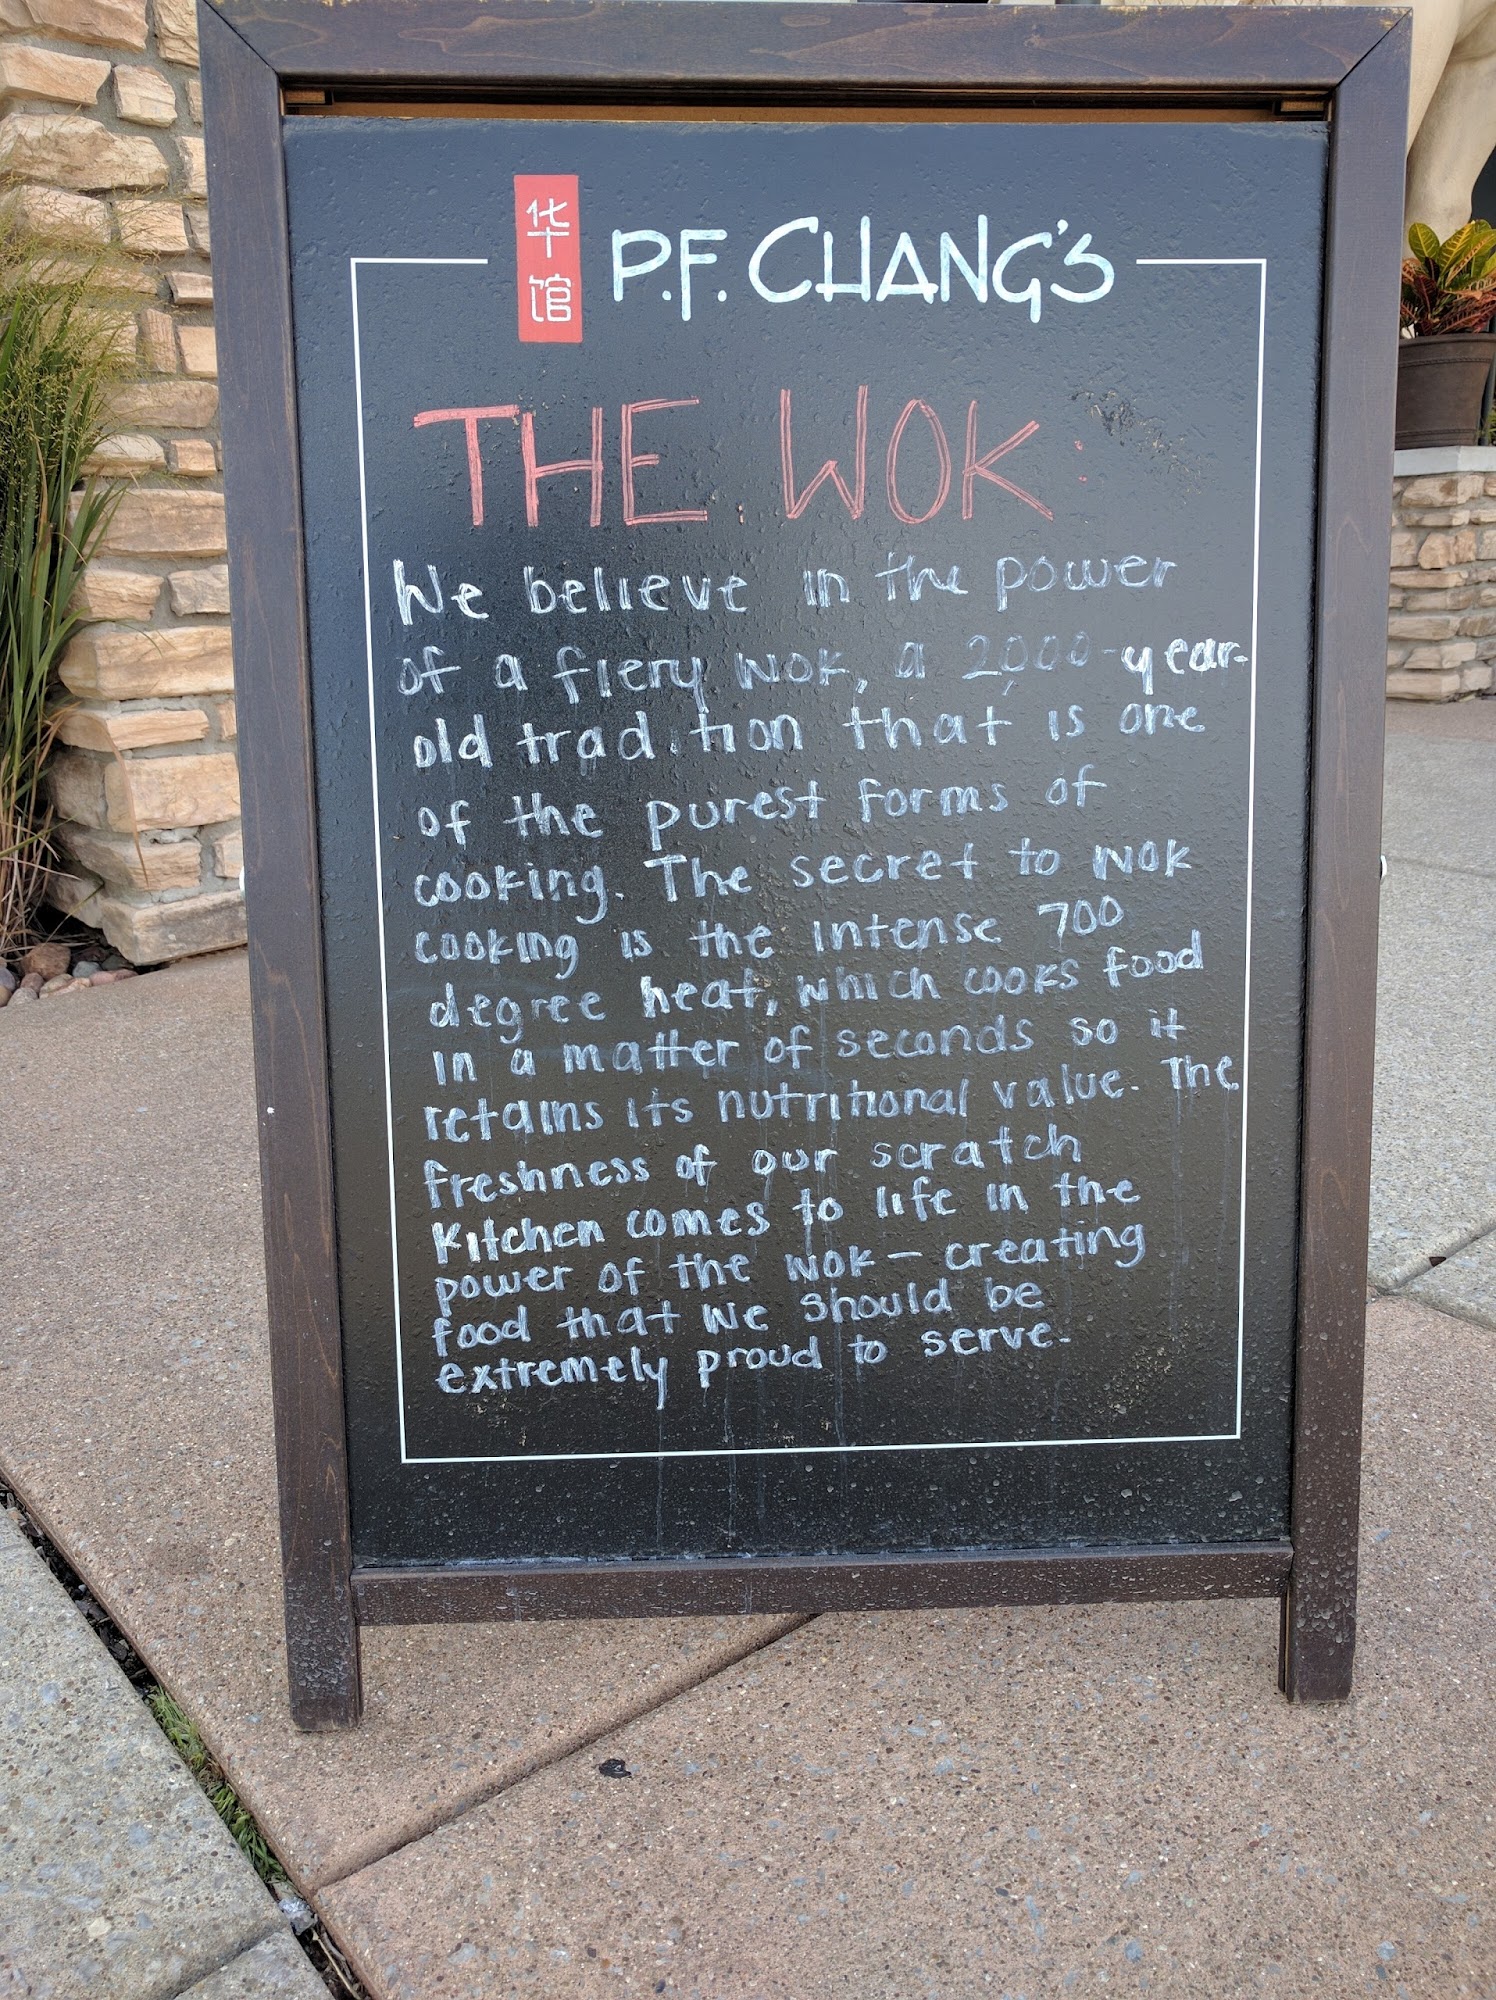 华馆
P.F. CHANG'S
THE WOK:
We believe in the power
of a fiery wok, a 2,000-year-
old tradition that is one
of the purest forms of
cooking. The secret to wok
cooking is the intense 700
degree heat, which cooks food
in a matter of seconds so it
retains its nutritional value. The
freshness of our scratch
kitchen comes to life in the
power of the wok — creating
food that we should be
extremely proud to serve.